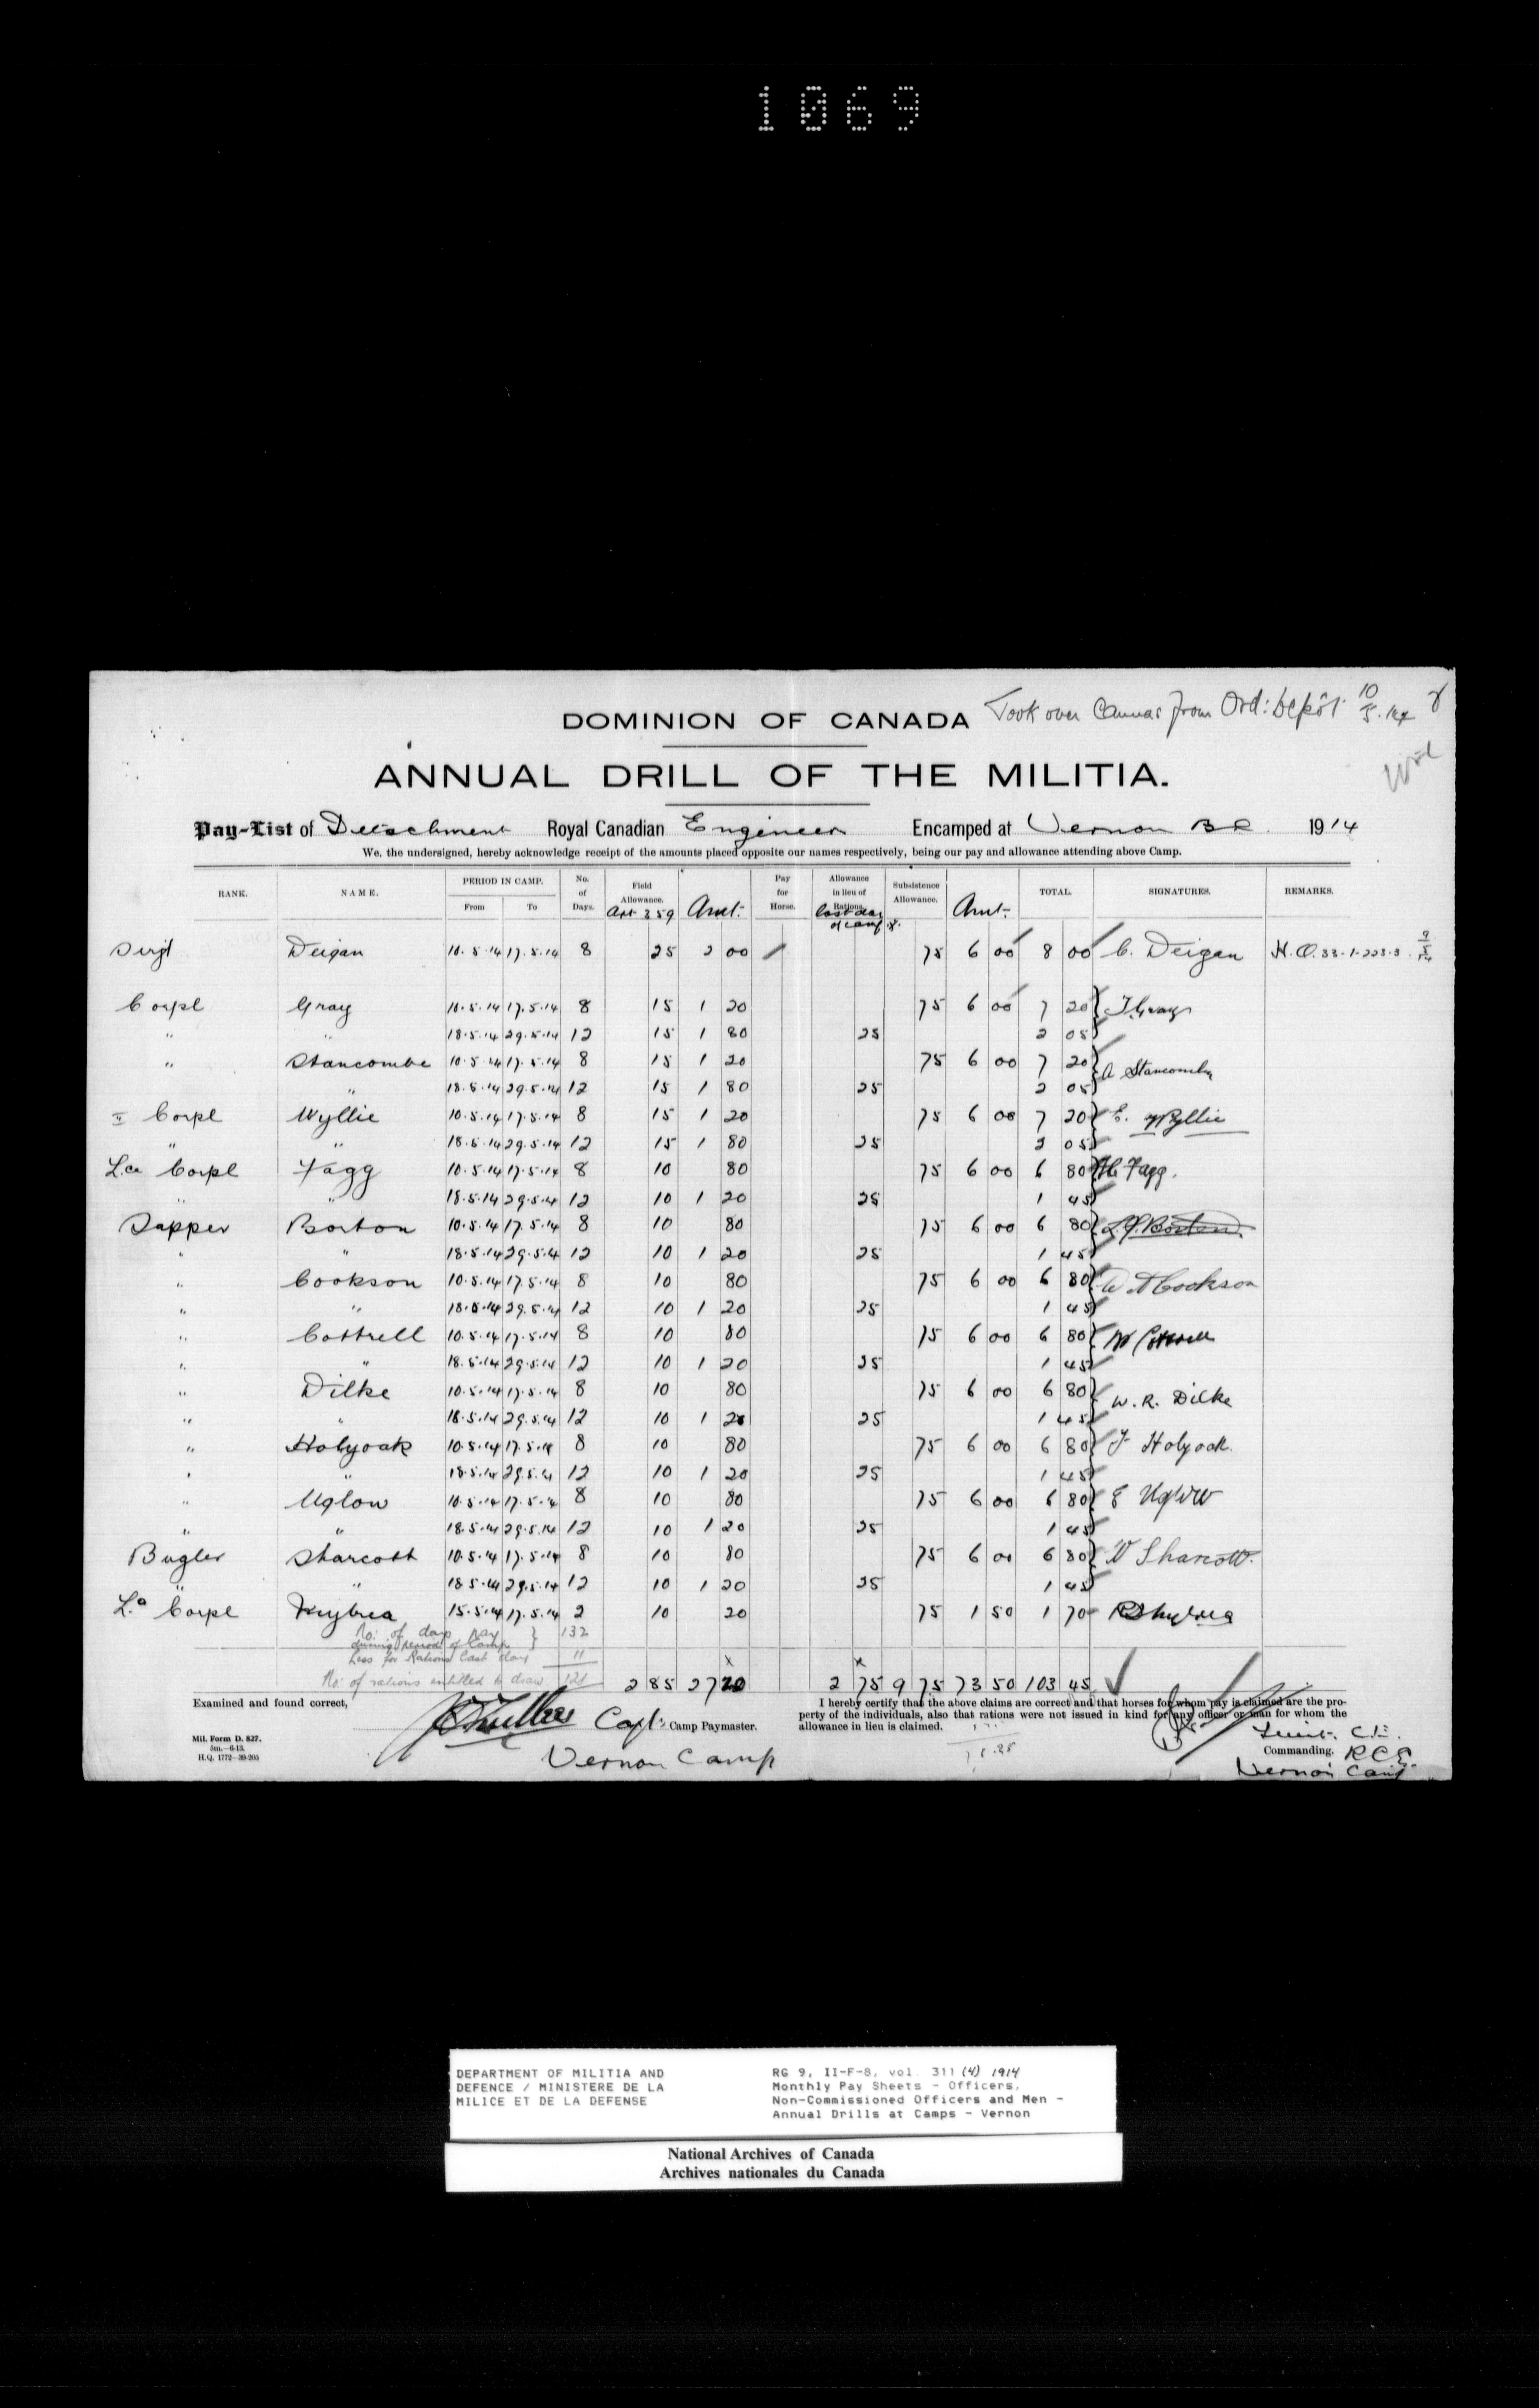 1069
DOMINION OF CANADA Took over Canvas from Ord: Depôt 10/5.14
ANNUAL DRILL OF THE MILITIA.
Pay-List of Detachment Royal Canadian Engineers Encamped at Vernon B C. 1914
We, the undersigned, hereby acknowledge receipt of the amounts placed opposite our names respectively, being our pay and allowance attending above Camp.
RANK. NAME. PERIOD IN CAMP. From To No. of Days. Field Allowance. Art 359 Amt. Pay for Horse. Allowance in lieu of Rations. last day of camp Subsistence Allowance. Amt. TOTAL. SIGNATURES. REMARKS.
Sergt Deigan 10.5.14 17.5.14 8 25 2 00 75 6 00 8 00 C. Deigan H.Q. 33-1-223-3
Corpl Gray 10.5.14 17.5.14 8 15 1 20 75 6 00 7 20 J Gray
" " 18.5.14 29.5.14 12 15 1 80 25 2 05
" Stancombe 10.5.14 17.5.14 8 15 1 20 75 6 00 7 20 A Stancombe
" 18.5.14 29.5.14 12 15 1 80 25 2 05
II Corpl Wyllie 10.5.14 17.5.14 8 15 1 20 75 6 00 7 20 E. Wyllie
" " 18.5.14 29.5.14 12 15 1 80 25 2 05
L.ce Corpl Fagg 10.5.14 17.5.14 8 10 80 75 6 00 6 80 H Fagg.
" " 18.5.14 29.5.14 12 10 1 20 25 1 45
Sapper Borton 10.5.14 17.5.14 8 10 80 75 6 00 6 80 Borton
" " 18.5.14 29.5.14 12 10 1 20 25 1 45
" Cookson 10.5.14 17.5.14 8 10 80 75 6 00 6 80 Cookson
" " 18.5.14 29.5.14 12 10 1 20 25 1 45
" Cottrell 10.5.14 17.5.14 8 10 80 75 6 00 6 80 W Cottrell
" " 18.5.14 29.5.14 12 10 1 20 25 1 45
" Dilke 10.5.14 17.5.14 8 10 80 75 6 00 6 80 W. R. Dilke
" " 18.5.14 29.5.14 12 10 1 20 25 1 45
" Holyoak 10.5.14 17.5.14 8 10 80 75 6 00 6 80 F Holyoak.
" " 18.5.14 29.5.14 12 10 1 20 25 1 45
" Uglow 10.5.14 17.5.14 8 10 80 75 6 00 6 80 E Uglow
" " 18.5.14 29.5.14 12 10 1 20 25 1 45
Bugler Sharcott 10.5.14 17.5.14 8 10 80 75 6 00 6 80 W Sharcott.
" " 18.5.14 29.5.14 12 10 1 20 25 1 45
L.ce Corpl 15.5.14 17.5.14 2 10 20 75 1 50 1 70
No: of days pay } 132
during period of Camp
Less for Rations last day 11
No: of rations entitled to draw 121 2 85 27 20 2 75 9 75 73 50 103 45
Examined and found correct,
Capt: Camp Paymaster.
Vernon Camp
Mil. Form D. 827.
5m.-6-13.
H.Q. 1772-39-205
I hereby certify that the above claims are correct and that horses for whom pay is claimed are the property of the individuals, also that rations were not issued in kind for any officer or man for whom the allowance in lieu is claimed.
Lieut. C.E.
Commanding. R C E.
Vernon Camp
DEPARTMENT OF MILITIA AND
DEFENCE / MINISTERE DE LA
MILICE ET DE LA DEFENSE
RG 9, II-F-8, vol. 311 (4) 1914
Monthly Pay Sheets - Officers,
Non-Commissioned Officers and Men -
Annual Drills at Camps - Vernon
National Archives of Canada
Archives nationales du Canada